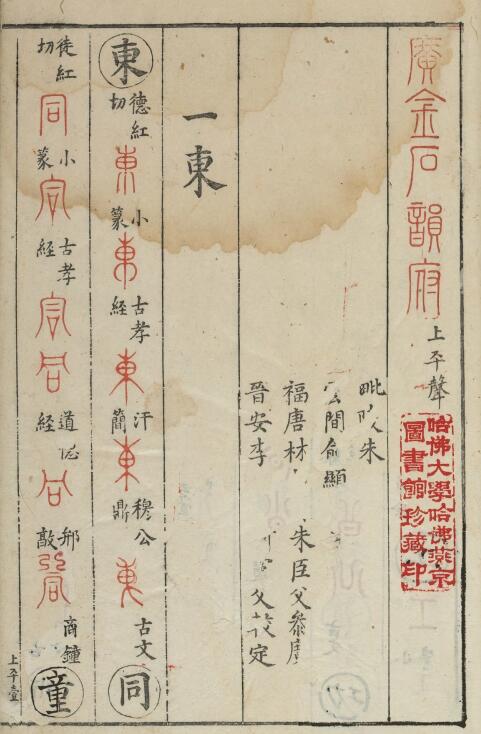 廣金石韻府上平聲
哈佛大學哈佛燕京
圖書館珍藏印
朱
間俞顯
福唐林 朱臣父參廣
晉安李 父校定
一東
東德紅切東小篆東古孝經東汗簡東穆公鼎東古文同
徒紅切同小篆同古孝經同同道德經同敲同商鐘童
上平壹